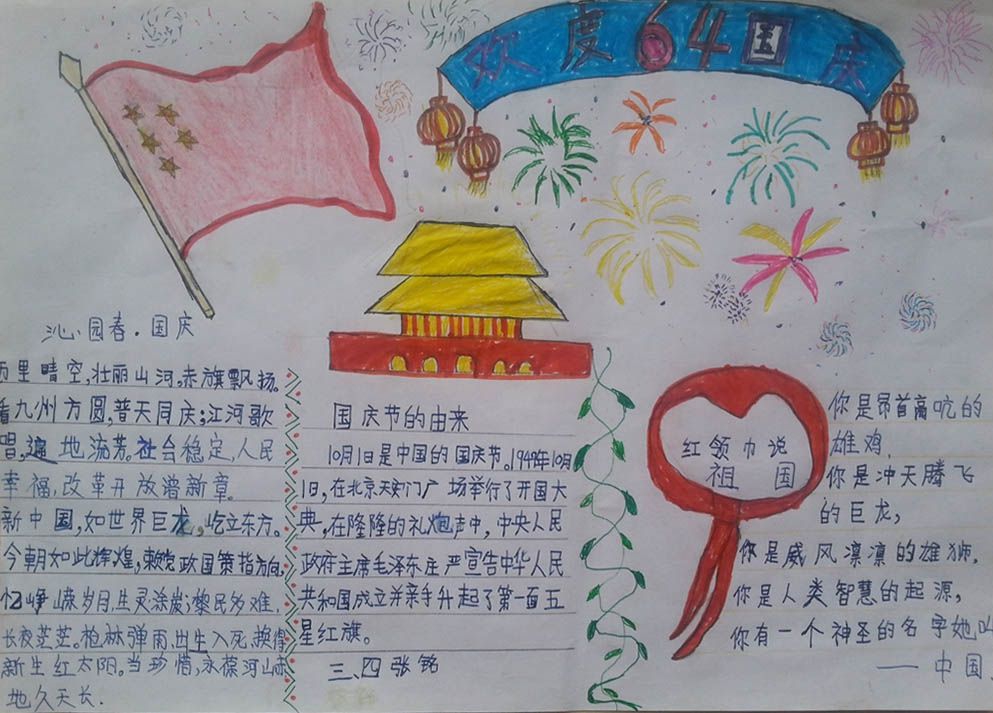 欢度64国庆
沁园春·国庆
万里晴空,壮丽山河。赤旗飘扬。
看九州方圆,普天同庆;江河歌
唱,遍地流芳。社会稳定,人民
幸福,改革开放谱新章。
新中国,如世界巨龙,屹立东方。
今朝如此辉煌,赖党政国策指方向,
忆峥嵘岁月,生灵涂炭;黎民多难,
长夜茫茫。枪林弹雨,出生入死,换得
新生红太阳。当珍惜,永葆河山
地久天长.
国庆节的由来
10月1日是中国的国庆节。1949年10月
1日,在北京天安门广场举行了开国大
典,在隆隆的礼炮声中,中央人民
政府主席毛泽东庄严宣告中华人民
共和国成立并亲手升起了第一面五
星红旗。
三、四张铭
红领巾说
祖国
你是昂首高吭的
雄鸡,
你是冲天腾飞
的巨龙,
你是威风凛凛的雄狮,
你是人类智慧的起源,
你有一个神圣的名字她叫
——中国.